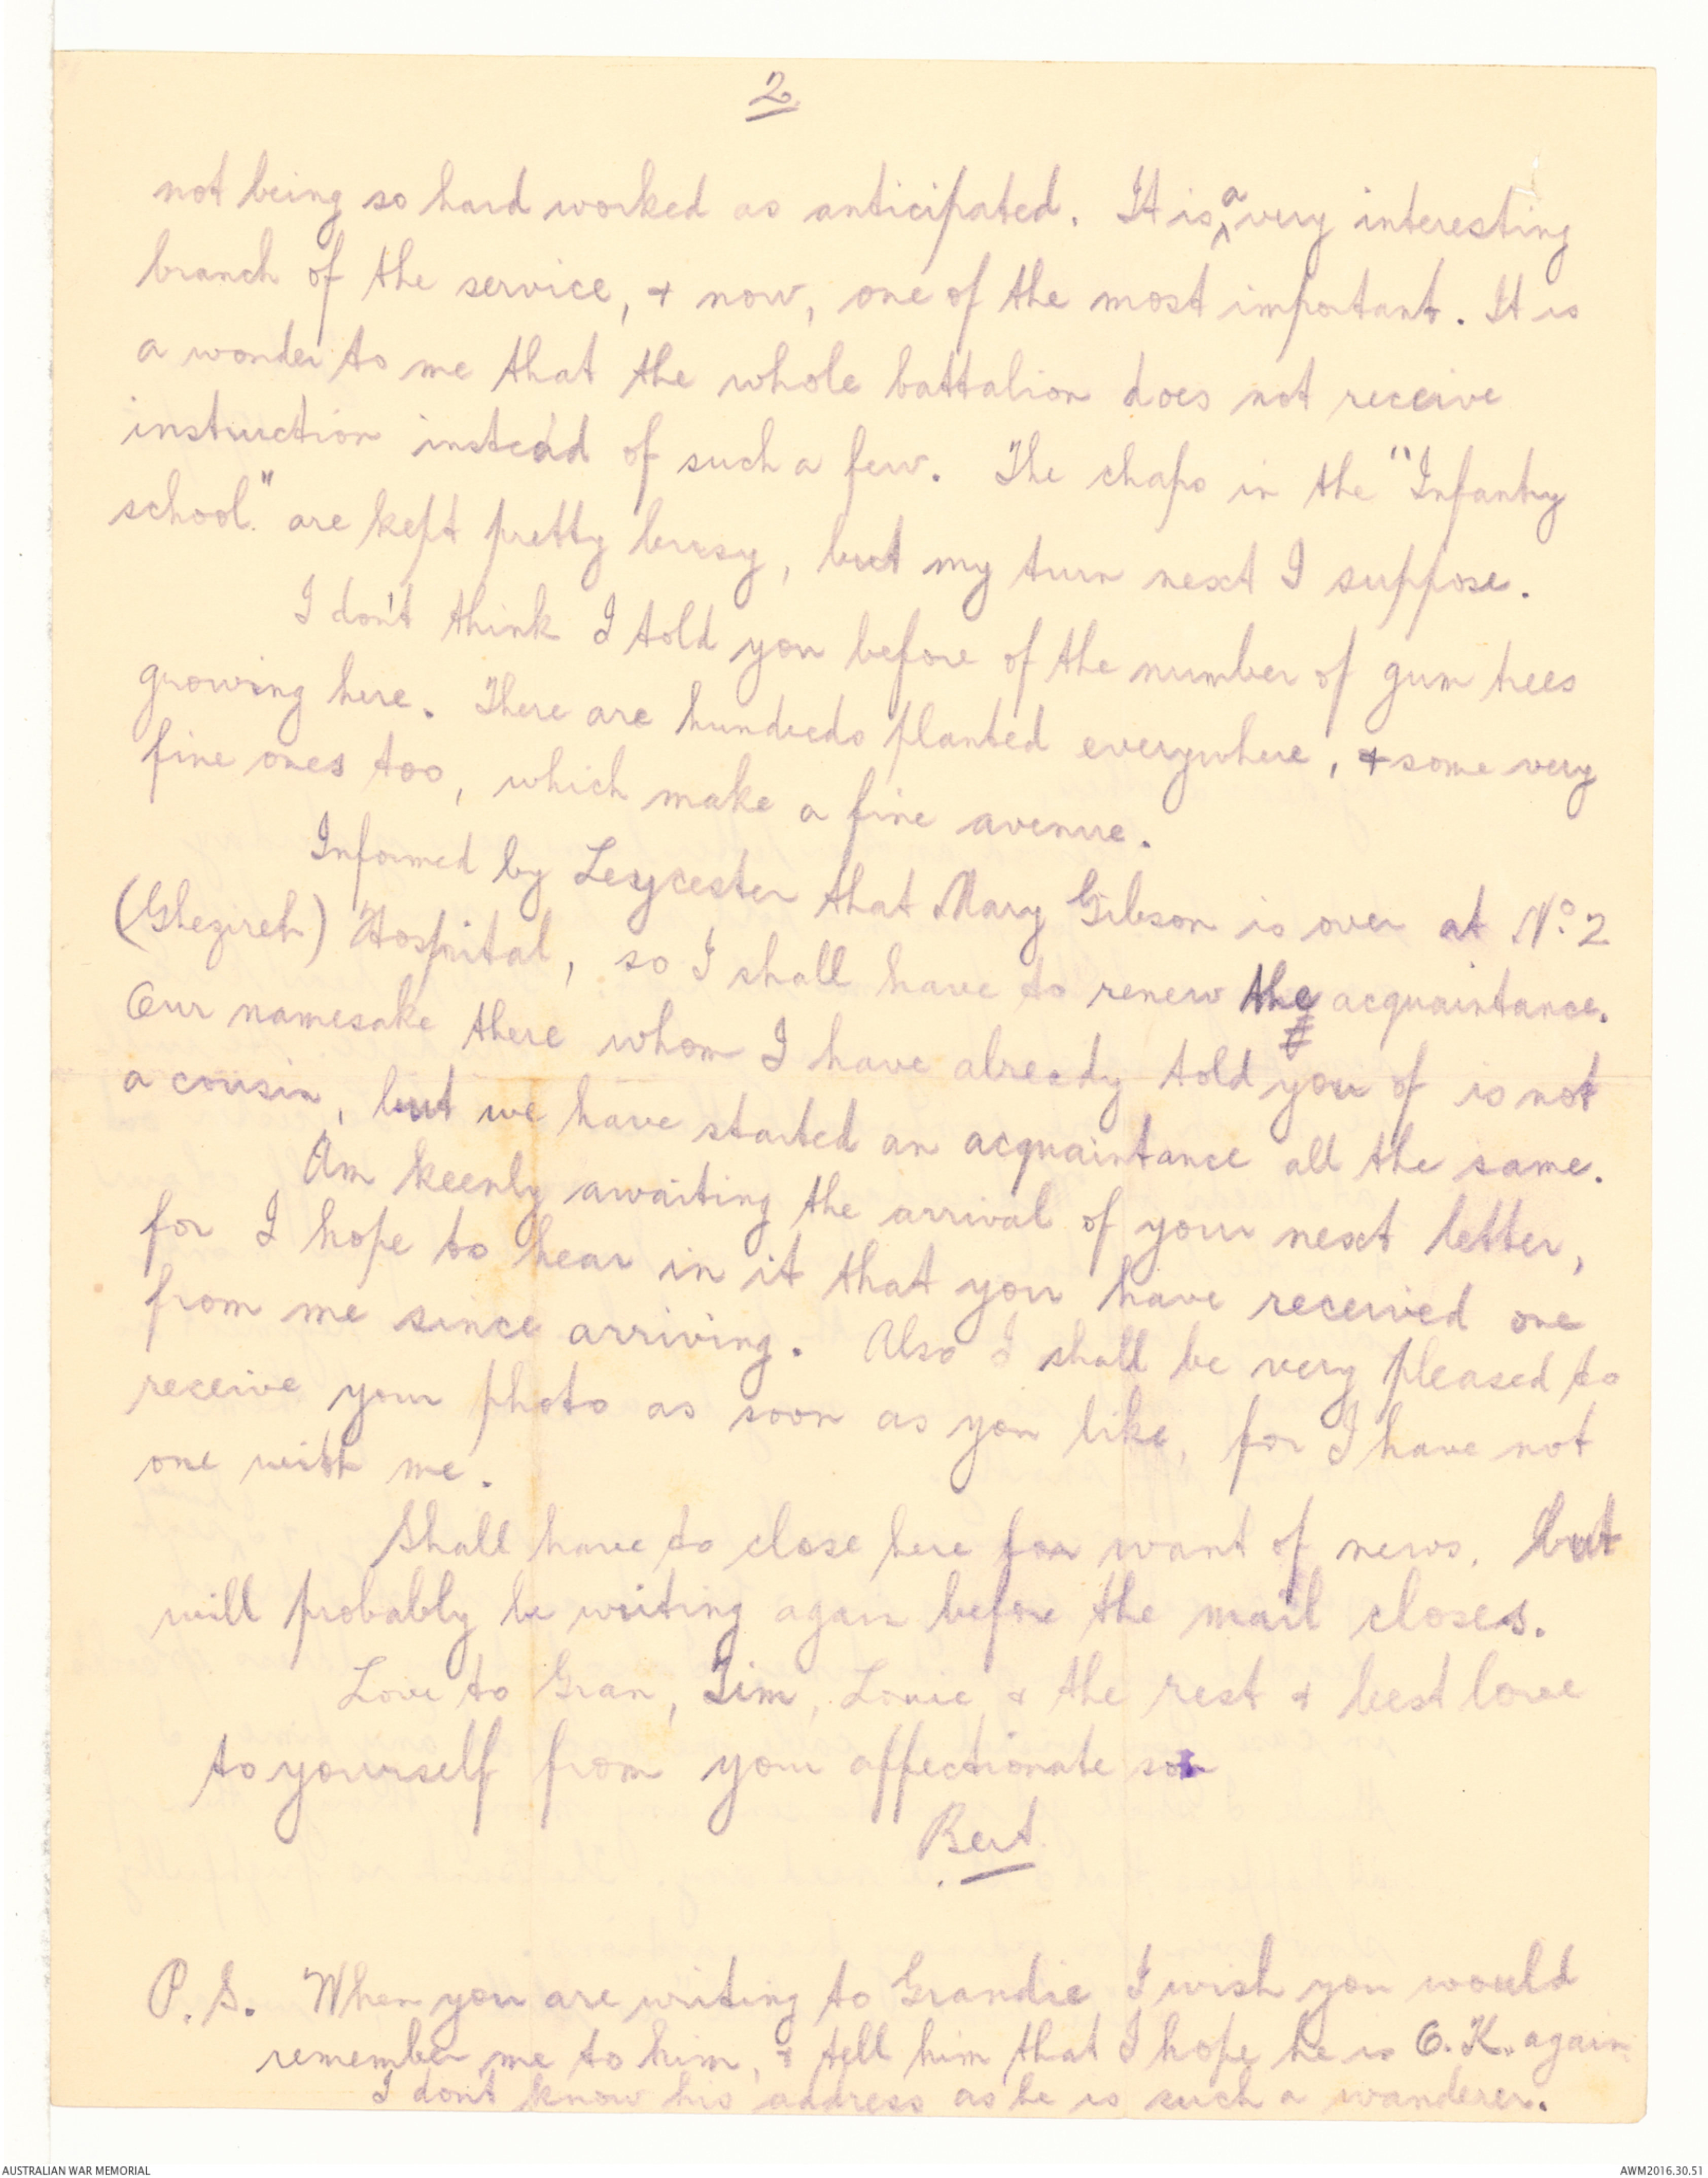 2
not being so hard worked as anticipated. It is a very interesting
branch of the service, & now, one of the most important. It is
a wonder to me that the whole battalion does not receive
instruction instead of such a few. The chaps in the "Infantry
school." are kept pretty busy, but my turn next I suppose.
I don't think I told you before of the number of gum trees
growing here. There are hundreds planted everywhere, & some very
fine ones too, which make a fine avenue.
Informed by Leycester that Mary Gibson is over at No. 2
(Ghezireh) Hospital, so I shall have to renew the acquaintance.
Our namesake there whom I have already told you of is not
a cousin, but we have started an acquaintance all the same.
Am keenly awaiting the arrival of your next letter,
for I hope to hear in it that you have received one
from me since arriving. Also I shall be very pleased to
receive your photo as soon as you like, for I have not
one with me.
Shall have to close here for want of news, but
will probably be writing again before the mail closes.
Love to Gran, Jim, Louie & the rest & best love
to yourself from your affectionate son
Bert.
P.S. When you are writing to Grandie I wish you would
remember me to him, & tell him that I hope he is O.K. again
I don't know his address as he is such a wanderer.
AUSTRALIAN WAR MEMORIAL
AWM2016.30.51